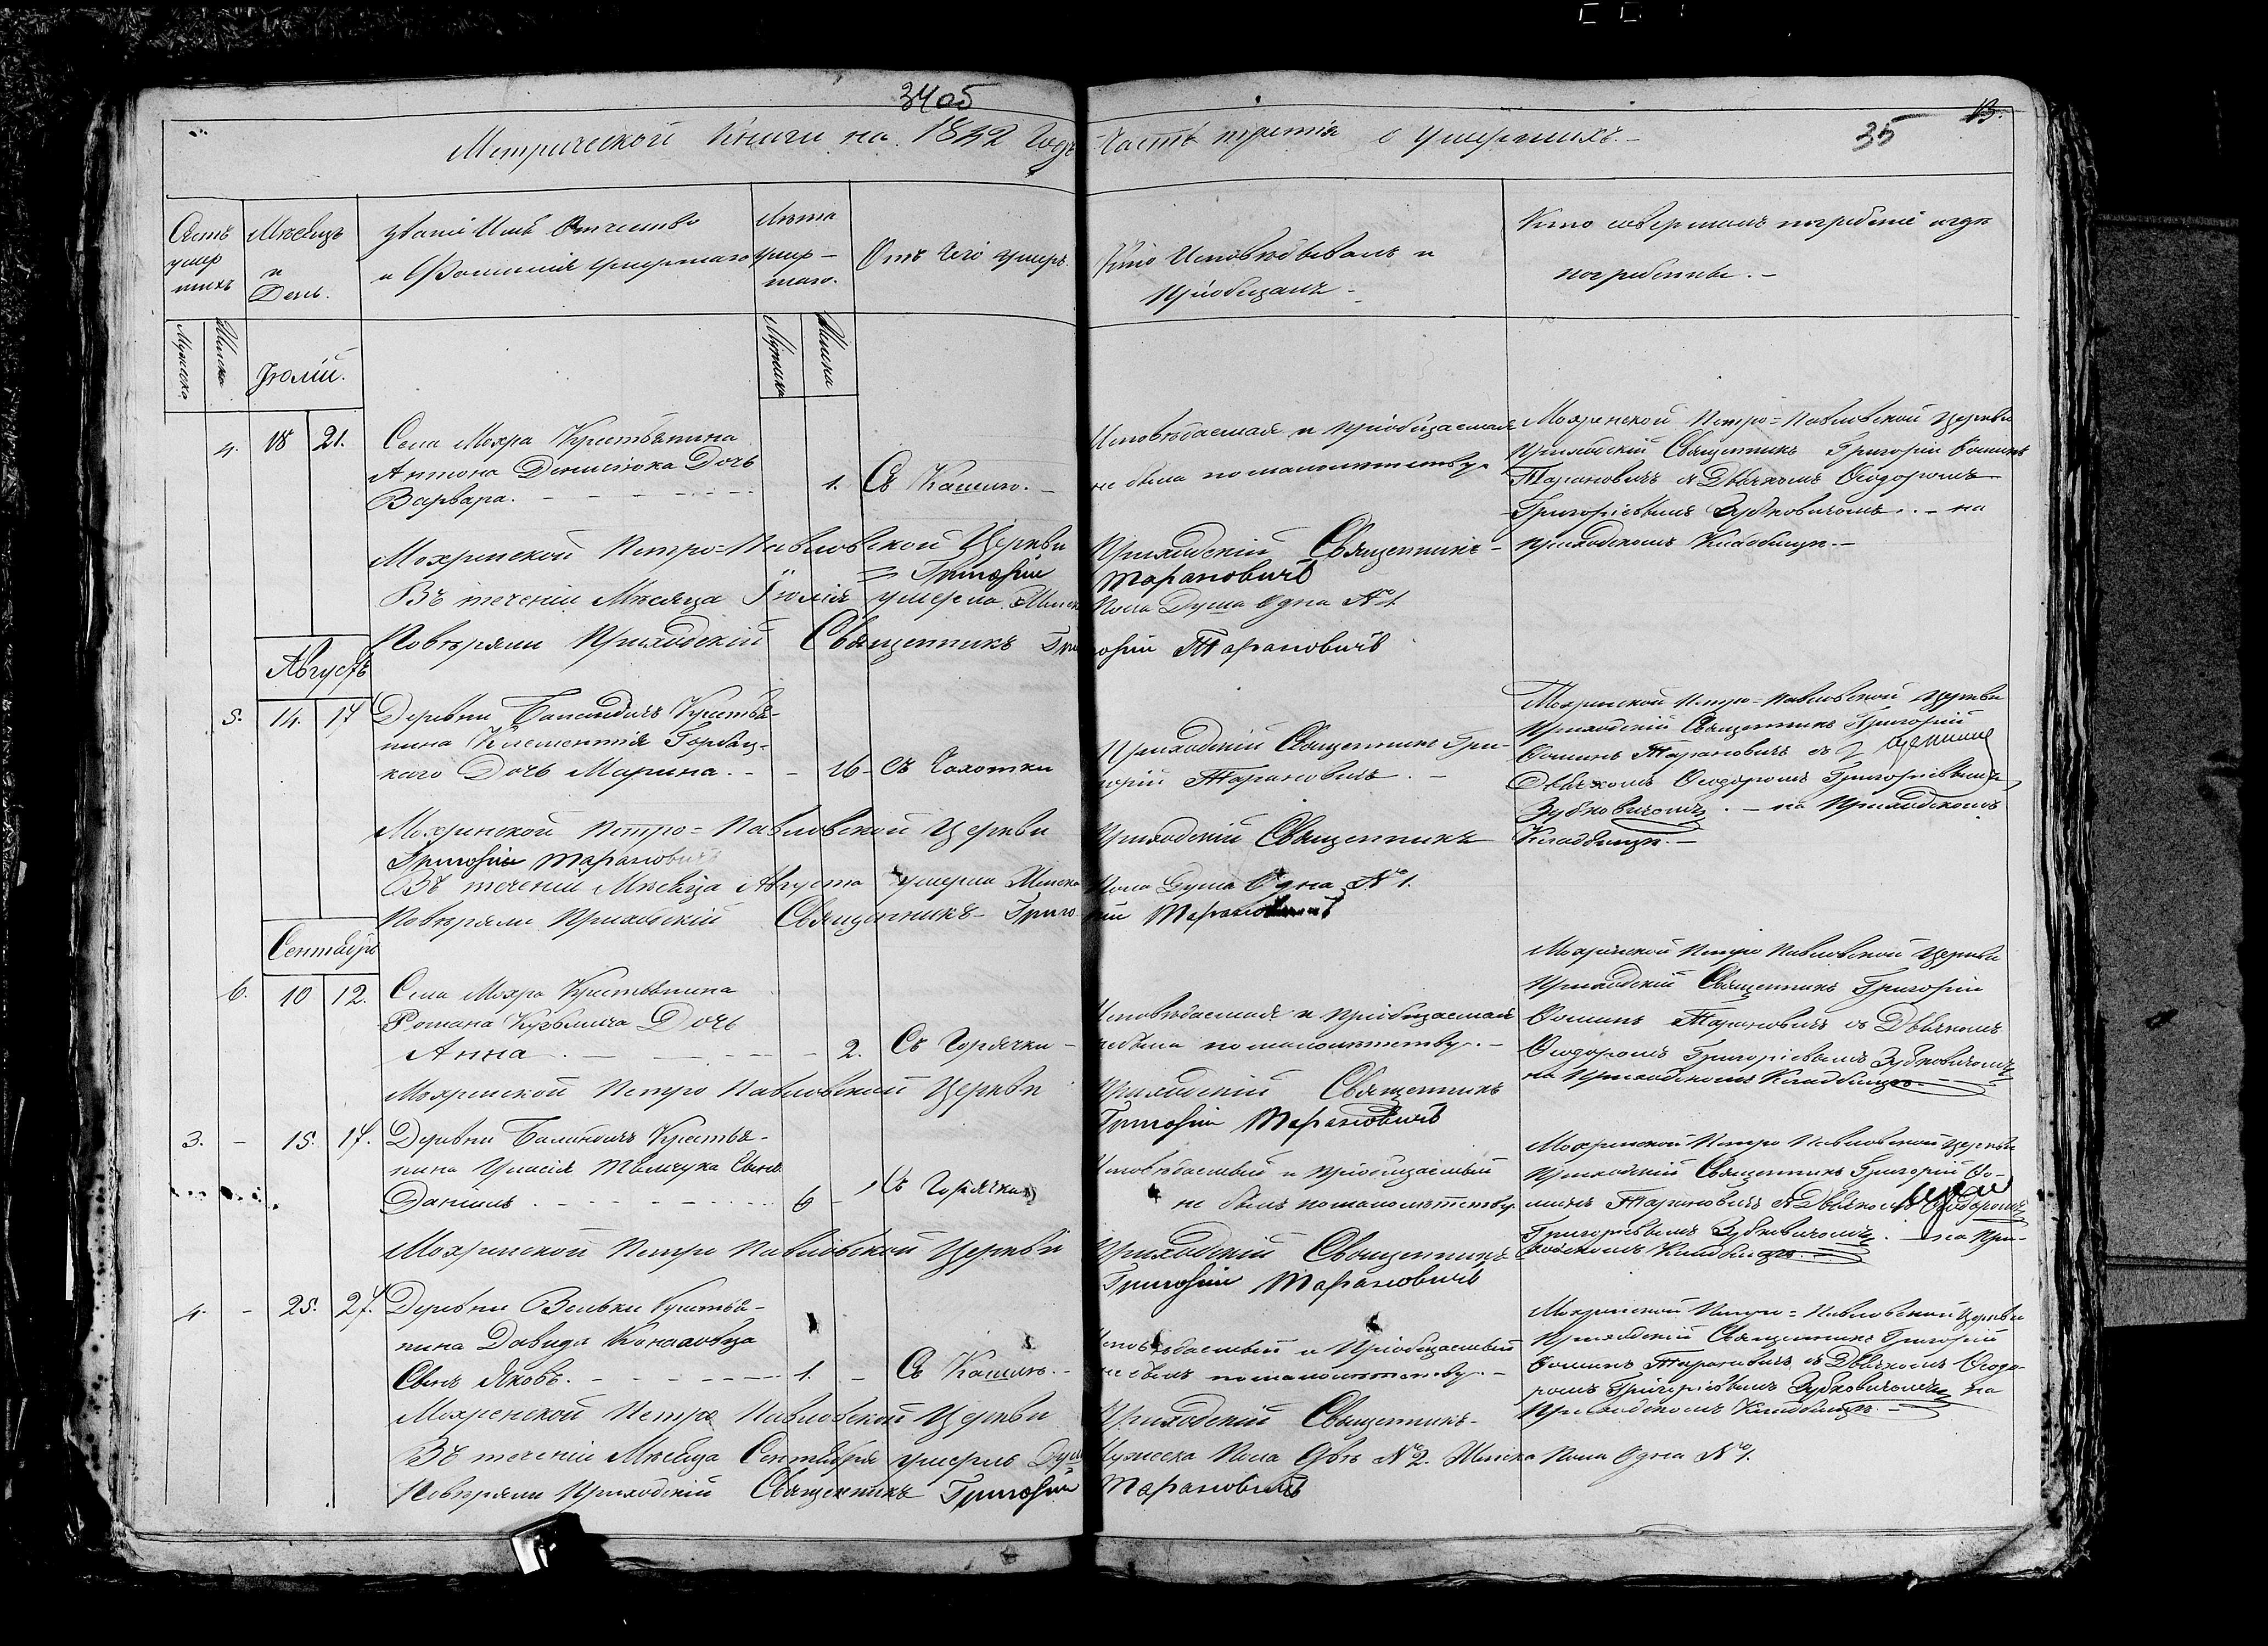 3405
Метрической Книги на 1842 Годъ Часть третія о умершихъ.-
35
13.
Счетъ умершихъ
Мѣсяцъ и День.
Званіе Имя Отчество и Фамилія умершаго
Лѣта умершаго.
Отъ чего умеръ.
Кто Исповѣдывалъ и пріобщалъ -
Кто совершалъ погребеніе и гдѣ погребены. -
Мужеска
Женска
Мужеска
Женска
Іюлій.
4. 18 21.
Села Мохра Крестьянина
Антона Денисюка Дочь
Варвара. - - - - - 1. Съ Кашлю. -
Исповѣдаемая и пріобщаемая
не была по малолѣтству.
Мохренской Петро=Павловской Церкви
Приходскій Священникъ Григорій Фоминъ
Тарановичъ съ Дьячкомъ Ѳеодоромъ
Григоріевымъ Зубковичомъ. - на
приходскомъ Кладбищѣ. -
Мохринской Петро=Павловской Церкви Приходскій Священникъ -
Григорій Тарановичъ
Въ теченіи Мѣсяца Іюлія умерла Женска Пола Душа Одна №1.
Повѣряли Приходскій Священникъ Григорій Тарановичъ
Августъ
5. 14. 17
Деревни Крестья-
нина Климентія Горбац-
каго Дочь Марина. - - 16 - Съ Чахотки
Приходскій Священникъ Гри-
горій Тарановичъ. -
Мохринской Петро=Павловской Церкви
Приходскій Священникъ Григорій
Фоминъ Тарановичъ съ
Дьячкомъ Ѳеодоромъ Григоріевымъ
Зубковичомъ. - на Приходскомъ
Кладбищѣ. -
Мохринской Петро=Павловской Церкви Приходскій Священникъ
Григорій Тарановичъ
Въ теченіи Мѣсяца Августа умерла Женска Пола Душа Одна №1.
Повѣряли Приходскій Священникъ Григорій Тарановичъ
Сентябрь
6. 10 12.
Села Мохра Крестьянина
Романа Кузьмича Дочь
Анна. - - - - - 2. Съ Горячки -
Исповѣдаемая и пріобщаемая
не была по малолѣтству. -
Мохринской Петро Павловской Церкви
Приходскій Священникъ Григорій
Фоминъ Тарановичъ съ Дьячкомъ
Ѳеодоромъ Григоріевымъ Зубковичомъ
на Приходскомъ Кладбищѣ.
Мохринской Петро Павловской Церкви Приходскій Священникъ
Григорій Тарановичъ
3. - 15. 17.
Деревни Крестья-
нина Уласія Сынъ
Даніилъ. - - - - - 6 - Съ Горячки
Исповѣдаемый и пріобщаемый
не былъ по малолѣтству
Мохринской Петро Павловской Церкви
Приходскій Священникъ Григорій Фо-
минъ Тарановичъ съ Дьячкомъ Ѳеодоромъ
Григоріевымъ Зубковичомъ. - на При-
ходскомъ Кладбищѣ.
Мохринской Петро Павловской Церкви Приходскій Священникъ
Григорій Тарановичъ
4. - 25. 27.
Деревни Вельки Крестья-
нина Давида
Сынъ Яковъ. - - - - - 1. - Съ Кашлю. -
Исповѣдаемый и Пріобщаемый
не былъ по малолѣтству. -
Мохринской Петро=Павловской Церкви
Приходскій Священникъ Григорій
Фоминъ Тарановичъ съ Дьячкомъ Ѳеодо-
ромъ Григоріевымъ Зубковичомъ на
Приходскомъ Кладбищѣ. -
Мохренской Петро Павловской Церкви Приходскій Священникъ -
Въ теченіи Мѣсяца Сентября умерло Душъ Мужеска Пола Двѣ №2. Женска Пола Одна №1.
Повѣряли Приходскій Священникъ Григорій Тарановичъ